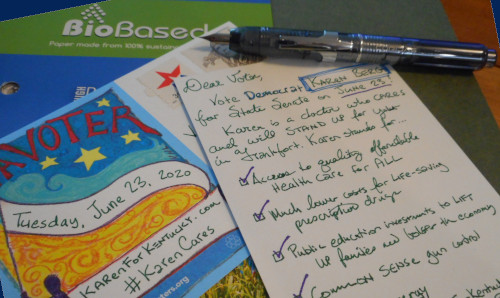 BioBased
Paper made from 100% sustai
A VOTER
Tuesday, June 23, 2020
KARENFORKENTUCKY.COM
#KarenCares
Dear Voter,
Vote Democrat KAREN BERG
for State Senate on JUNE 23rd
Karen is a doctor who CARES
and will STAND UP for you
in Frankfort. Karen stands for...
✓ Access to quality affordable
Health Care for ALL
✓ Much lower costs for life-saving
prescription drugs
✓ Public education investments to LIFT
UP families and bolster the economy
✓ COMMON SENSE gun control